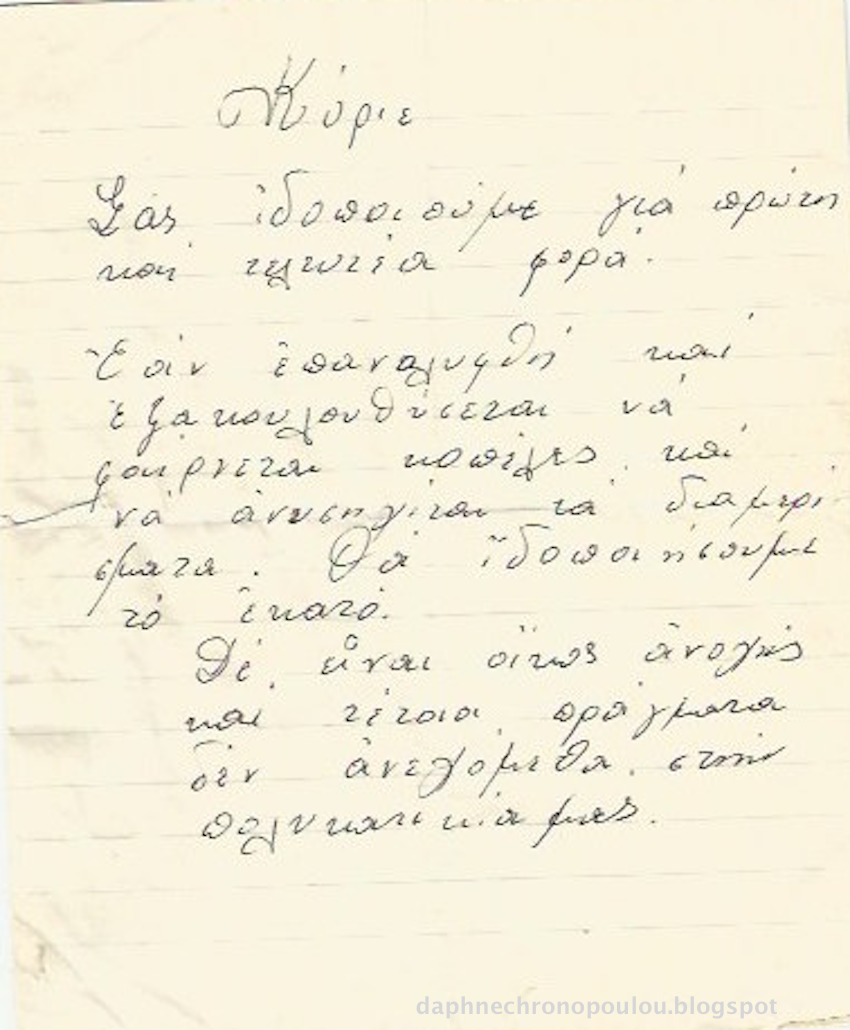 Κύριε
Σάς ἰδοποιούμε γιά πρώτη
καί τελευτέα φορά.
Ἐάν ἐπαναλυφθή καί
ἐξακουλουθήσεται νά
φαίρνεται κοπέλες, καί
νά ἀνησηχίται τά διαμερί
σματα. Θά ἰδοποιήσουμε
τό ἑκατό.
Δέ, εἶναι οἴκος ἀνοχής
καί τέτοια, πράγματα
δέν ἀνεχόμεθα, στην
πολυκατικία μας.
daphnechronopoulou.blogspot